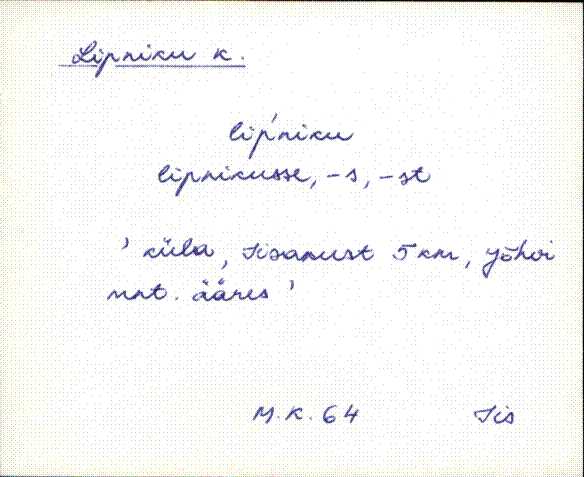 Lipniku k.
lip'niku
lipnikusse, -s, -st
' küla, Iisakust 5 km, Jõhvi
mnt. ääres '
M.K. 64 Iis